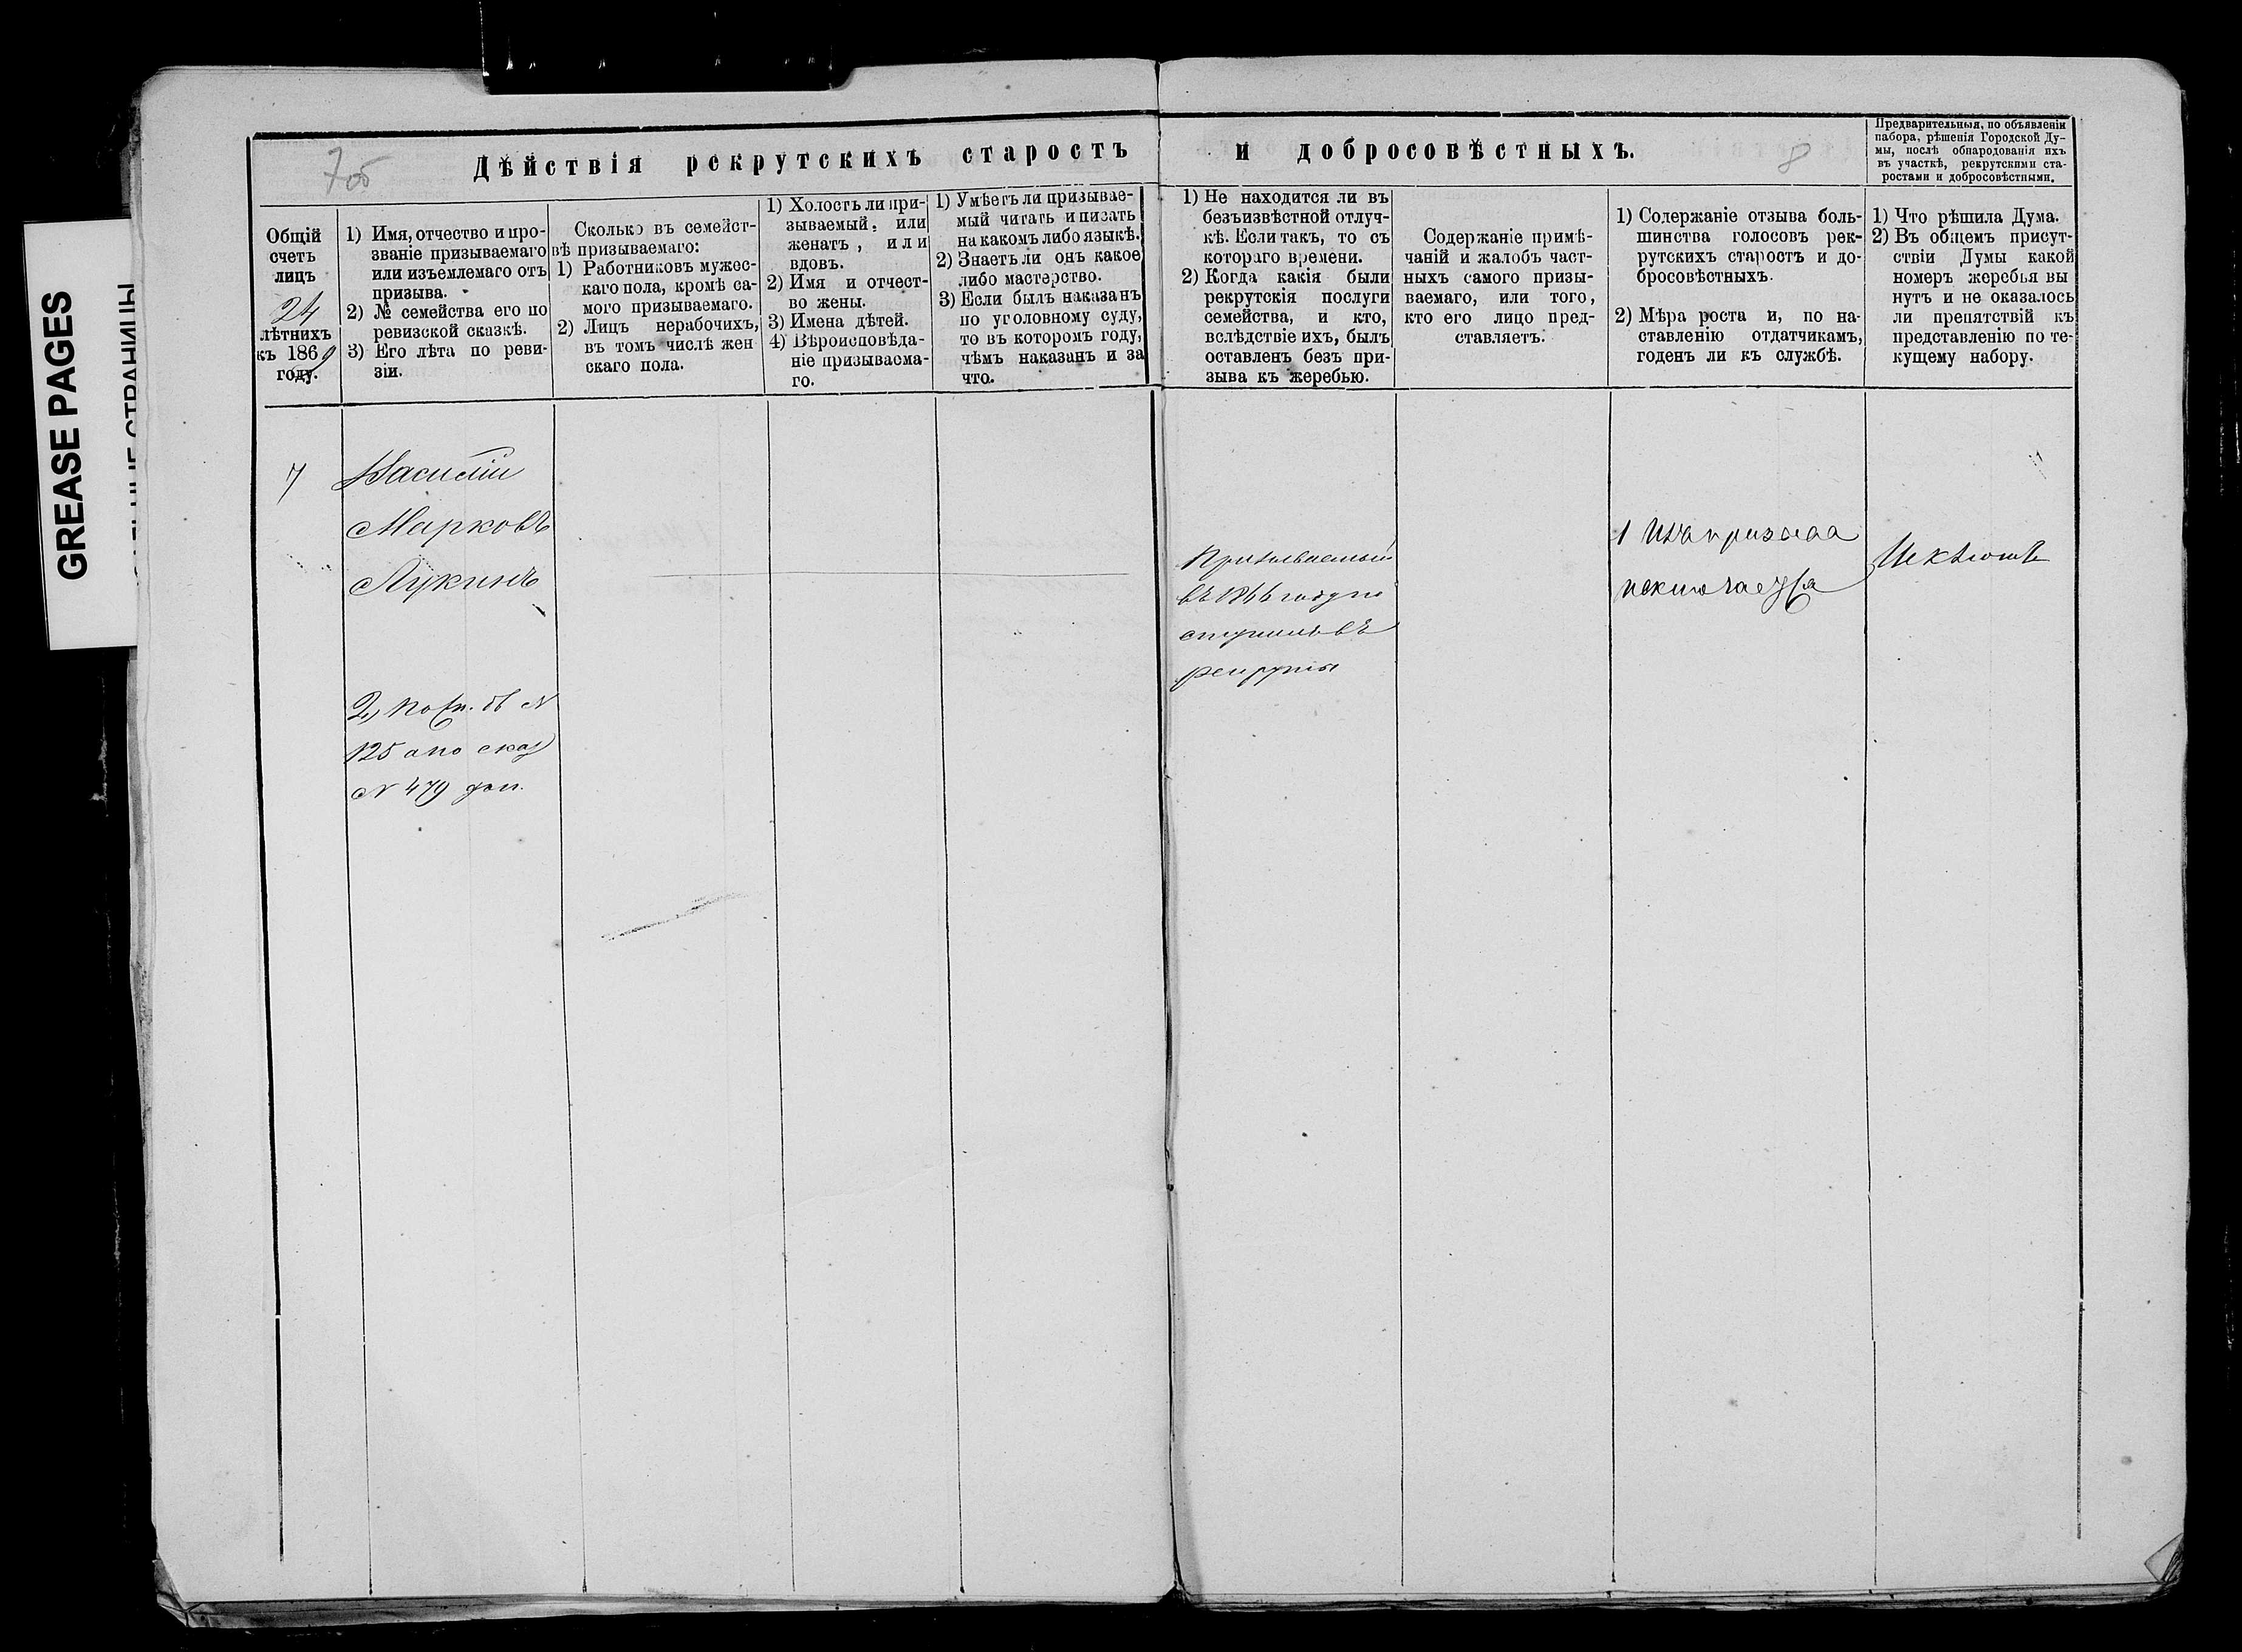 GREASE PAGES
7об
8
Дѣйствія рекрутскихъ старостъ и добросовѣстныхъ.
Предварительныя, по объявленіи
набора, рѣшенія Городской Ду-
мы, послѣ обнародованія ихъ
въ участкѣ, рекрутскими ста-
ростами и добросовѣстными.
Общій
счетъ
лицъ
24
лѣтнихъ
къ 1869
году.
1) Имя, отчество и про-
званіе призываемаго
или изъемлемаго отъ
призыва.
2) № семейства его по
ревизской сказкѣ.
3) Его лѣта по реви-
зіи.
Сколько въ семейст-
вѣ призываемаго:
1) Работниковъ мужес-
каго пола, кромѣ са-
мого призываемаго.
2) Лицъ нерабочихъ,
въ томъ числѣ жен
скаго пола.
1) Холостъ ли при-
зываемый, или
женатъ, или
вдовъ.
2) Имя и отчест-
во жены.
3) Имена дѣтей.
4) Вѣроисповѣда-
ніе призываема-
го.
1) Умѣетъ ли призывае-
мый читать и писать
на какомъ либо языкѣ.
2) Знаетъ ли онъ какое
либо мастерство.
3) Если былъ наказанъ
по уголовному суду,
то въ которомъ году,
чѣмъ наказанъ и за
что.
1) Не находится ли въ
безъизвѣстной отлуч-
кѣ. Если такъ, то съ
котораго времени.
2) Когда какія были
рекрутскія послуги
семейства, и кто,
вслѣдствіе ихъ, былъ
оставленъ безъ при-
зыва къ жеребью.
Содержаніе примѣ-
чаній и жалобъ част-
ныхъ самого призы-
ваемаго, или того,
кто его лицо пред-
ставляетъ.
1) Содержаніе отзыва боль-
шинства голосовъ рек-
рутскихъ старостъ и до-
бросовѣстныхъ.
2) Мѣра роста и, по на-
ставленію отдатчикамъ,
годенъ ли къ службѣ.
1) Что рѣшила Дума.
2) Въ общемъ присут-
ствіи Думы какой
номеръ жеребья вы
нутъ и не оказалось
ли препятствій къ
представленію по те-
кущему набору.
7
Василій
Марковъ
Лукинъ
2) по
125 а по сказ
N 479
Призываемый
въ 1866 году по
ступилъ въ
рекруты
1 Изъ призыва
исключается
Исключить